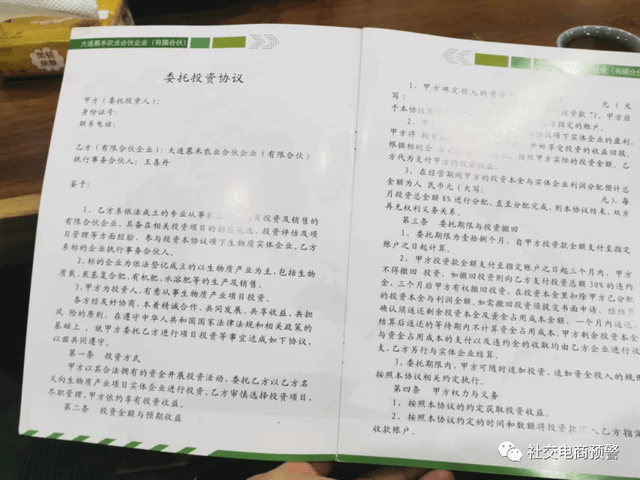 大连慕禾农业合伙企业（有限合伙）
委托投资协议
甲方（委托投资人）：
身份证号：
联系电话：
乙方（有限合伙企业）：大连慕禾农业合伙企业（有限合伙）
执行事务合伙人：王喜丹
鉴于：
1、乙方系依法成立的专业从事 项目投资及销售的
有限合伙企业，具备在相关投资项目的 投资评估及项
目管理等方面经验，参与投资本协议项下生物质实体企业，乙方
系标的企业执行事务合伙人。
2、标的企业为依法登记成立的以生物质产业为主，包括生物
质炭、炭基复合肥、有机肥、水溶肥等的生产及销售。
3、甲方为投资人，有意从事生物质产业项目投资。
各方经友好协商，本着精诚合作、共同发展、共享收益、共担
风 险的原则，在遵守中华人民共和国国家法律法规和相关政策的
基础上 ，就甲方委托乙方进行项目投资等事宜达成如下协议，
以兹共同遵守。
第一条 投资方式
甲方以其合法拥有的资金开展投资活动，委托乙方以乙方名
义向生物质产业项目实体企业进行投资。乙方审慎选择投资项目，
尽职管理，甲方依约享有投资收益。
第二条 投资金额与预期收益
（有限合伙）
1、甲方确定投入的资金 元（大
写： 投资款"），甲方应
于本协议 指定的账户。
2、 协议项下实体企业的盈利，
甲方将 开始享受投资的收益回报。
根据标的企 按照甲方实际的投资金额，乙
方代为支付甲方的投资收益。
3、在经营期间甲方的投资本金与实体企业利润分配预计总
金额为人 民币元（大写： 元），每
月投资总金额 8%进行分配，直至分配完成，则本协议结束，双方
再无权利义务关系。
第三条 委托期限与投资撤回
1、委托期限为壹拾捌个月，自甲方投资款金额支付至指定
账户之日起计算。
2、甲方投资款金额支付至指定账户之日起三个月内，甲方
不得撤回 投资，如撤回投资则向乙方支付投资总额 30%的违约
金，三个月后甲方有权撤回投资，在投资本金里扣除甲方已分配
的投资本金与利润金额。如需撤回投资须提交书面申请，经结算
确认须返还剩余投资本金及资金占用成本金额，一个月内返还，
结算后返还的等待期内不计算资金占用成本。甲方剩余投资本金
与资金占用成本的支付以及违约金的收取均由乙方企业进行收
支，乙方另行与实体企业结算。
3、委托期限内，甲方可随时追加投资，追加资金投入的规则
按照本协议相关约定执行。
第四条 甲方权力与义务
1、按照本协议的约定获取投资收益。
2、按照本协议约定的时间和数额将投资款汇入乙方指定
收款账户。
社交电商预警